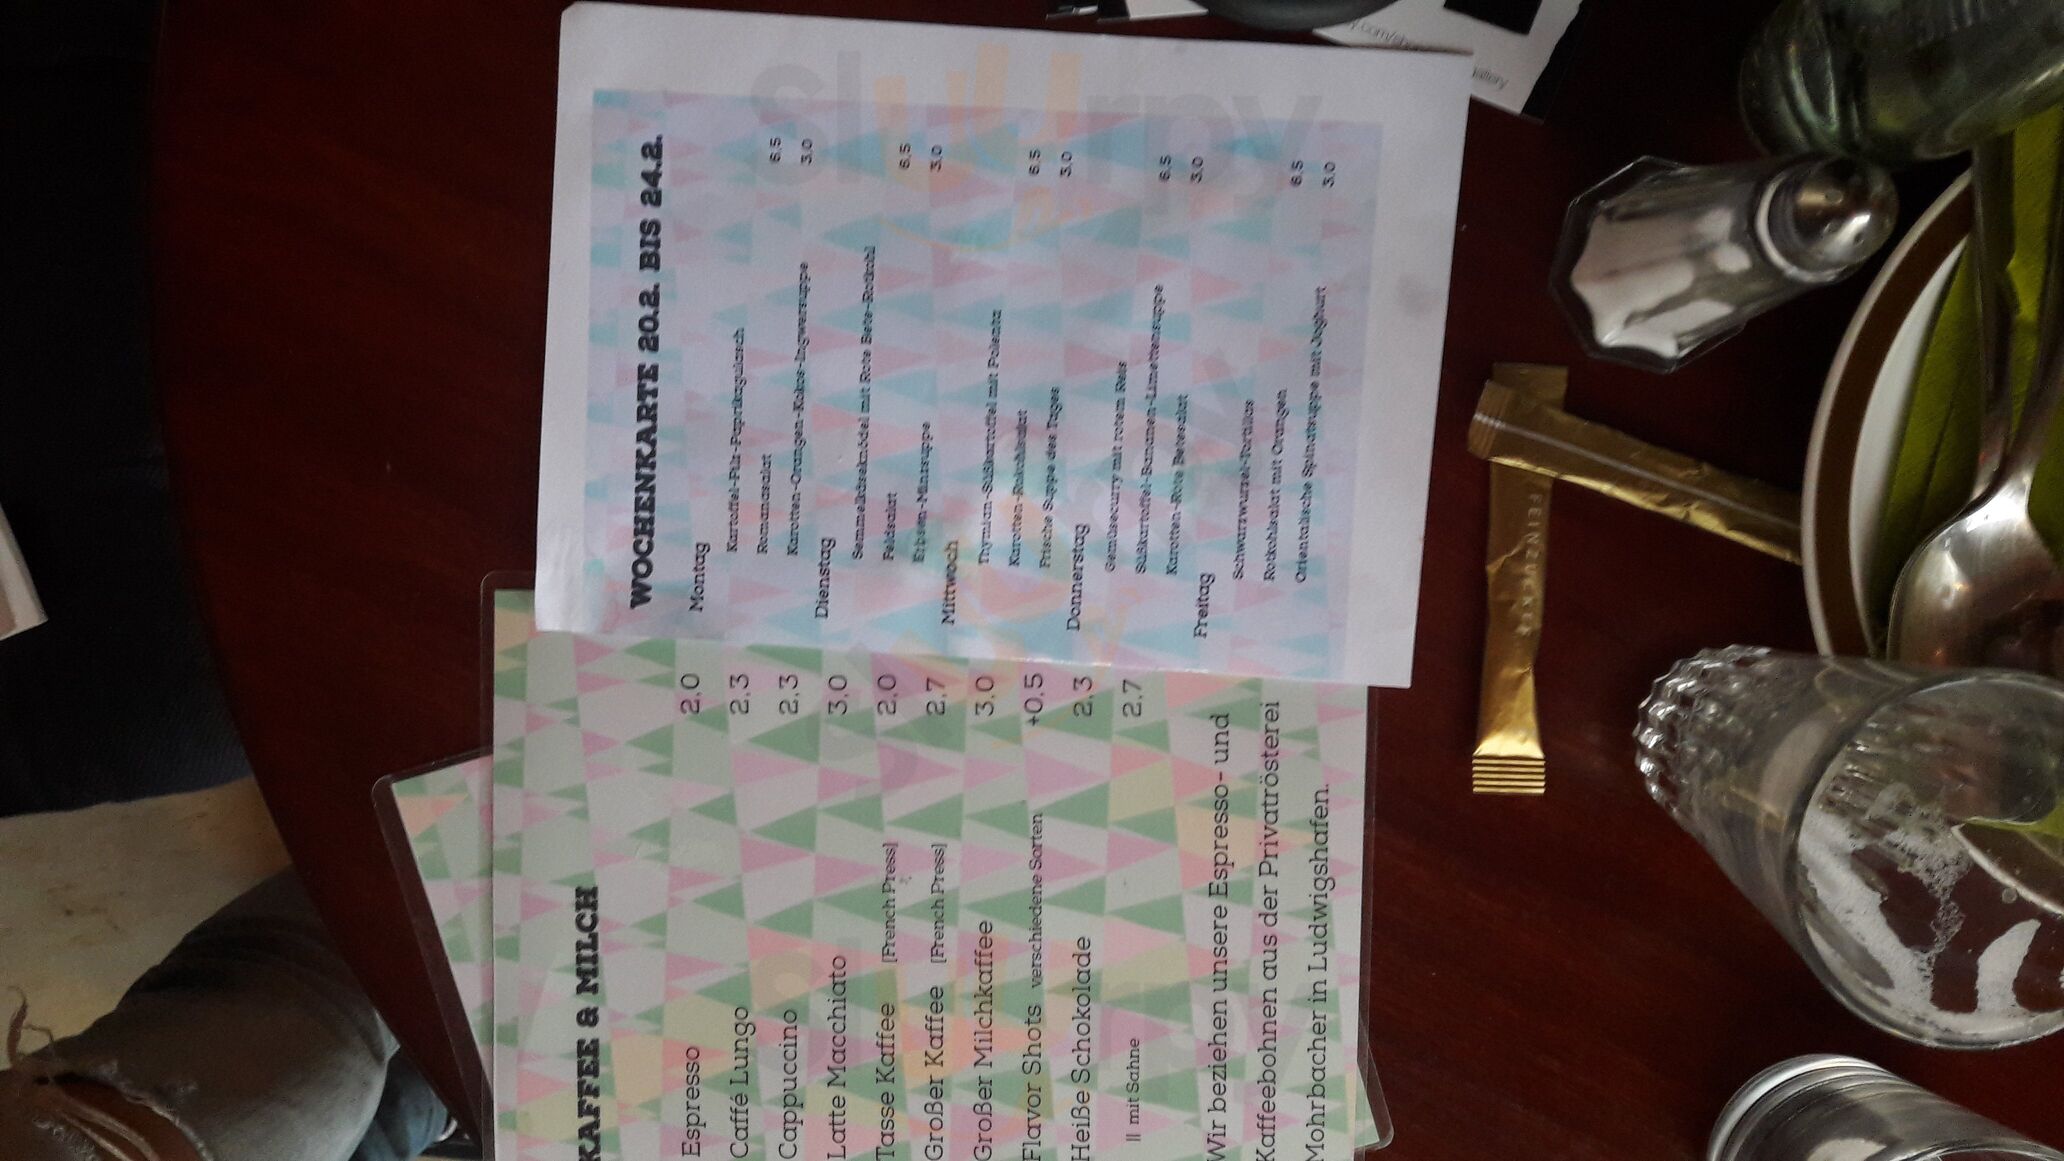 WOCHENKARTE 20.2. BIS 24.2.
Montag
Kartoffel-Pilz-Paprikagulasch
Romanasalat 6.5
Karotten-Orangen-Kokos-Ingwersuppe 3.0
Dienstag
Semmelkäseknödel mit Rote Bete-Rotkohl
Feldsalat 6.5
Erbsen-Minzsuppe 3.0
Mittwoch
Thymian-Süßkartoffel mit Polenta
Karotten-Rotkohlsalat 6.5
Frische Suppe des Tages 3.0
Donnerstag
Gemüsecurry mit rotem Reis
Süßkartoffel-Bananen-Limettensuppe 6.5
Karotten-Rote Betesalat 3.0
Freitag
Schwarzwurzel-Tortillas
Rotkohlsalat mit Orangen 6.5
Orientalische Spinatsuppe mit Joghurt 3.0
KAFFEE & MILCH
Espresso 2.0
Caffé Lungo 2.3
Cappuccino 2.3
Latte Macchiato 3.0
Tasse Kaffee [French Press] 2.0
Großer Kaffee [French Press] 2.7
Großer Milchkaffee 3.0
Flavor Shots verschiedene Sorten +0.5
Heiße Schokolade 2.3
|| mit Sahne 2.7
Wir beziehen unsere Espresso- und
Kaffeebohnen aus der Privatrösterei
Mohrbacher in Ludwigshafen.
FEINZUCKER
sluurpy